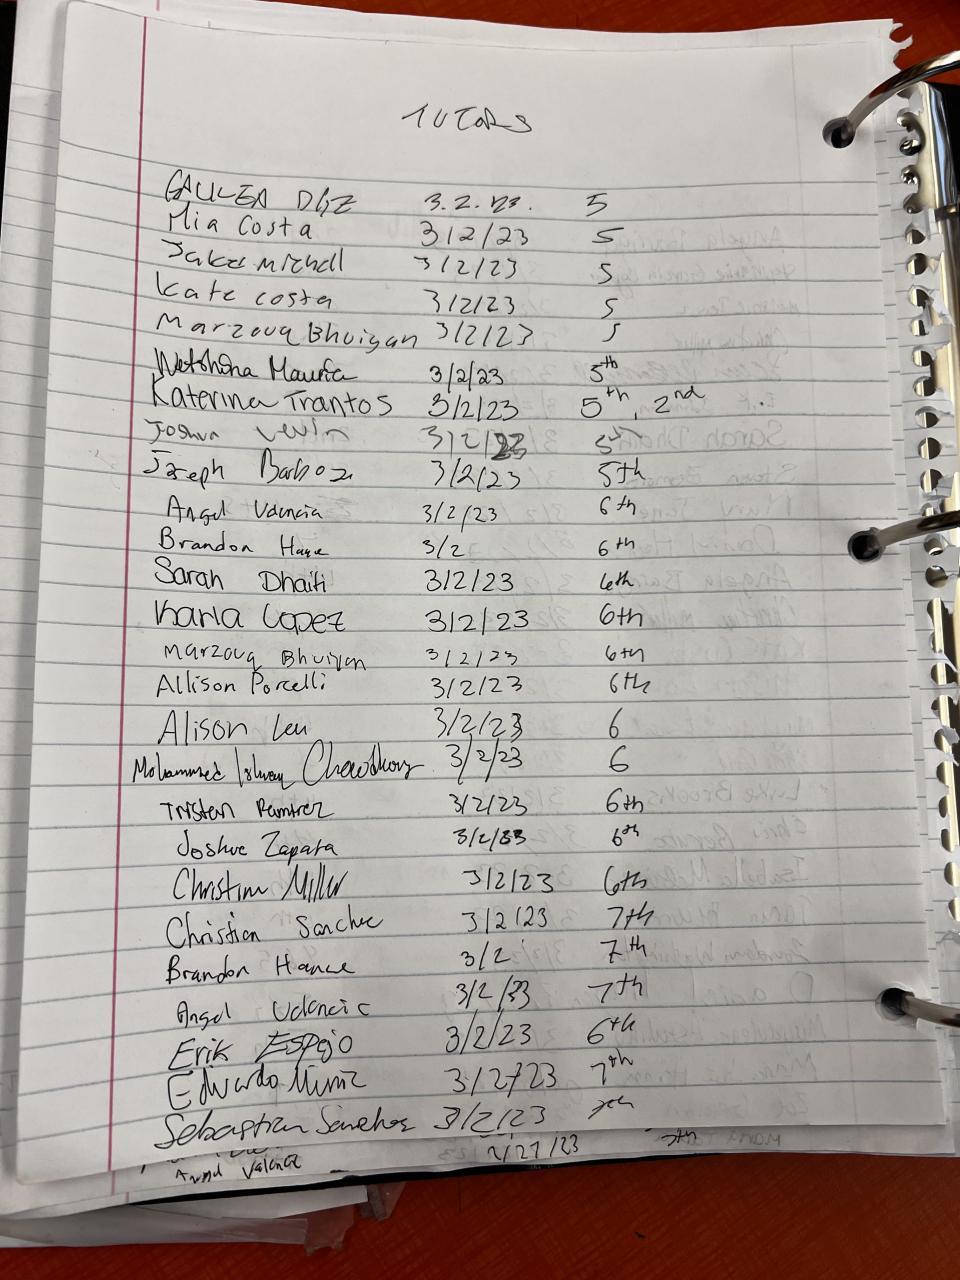 TUTORS
GALILEA DIAZ 3.2.23. 5
Mia Costa 3/2/23 5
Jake Michell 3/2/23 5
Kate costa 3/2/23 5
Marzouq Bhuiyan 3/2/23 5
3/2/23 5th
Katerina Trantos 3/2/23 5th, 2nd
Joshua Levin 3/2/23 5th
Joseph Barboza 3/2/23 5th
Angel Valencia 3/2/23 6th
Brandon Hance 3/2 6th
Sarah Dhaiti 3/2/23 6th
Karla Lopez 3/2/23 6th
Marzouq Bhuiyan 3/2/23 6th
Allison Porcelli 3/2/23 6th
Alison Leu 3/2/23 6
Mohammed Chowdhury 3/2/23 6
Tristen Ramirez 3/2/23 6th
Joshue Zapata 3/2/23 6th
Christina Miller 3/2/23 6th
Christian Sanchez 3/2/23 7th
Brandon Hance 3/2 7th
Angel Valencia 3/2/23 7th
Erik Espejo 3/2/23 6th
Edwardo Muniz 3/2/23 7th
Sebastian Sanchez 3/2/23 7th
Angel Valencia 2/27/23 7th